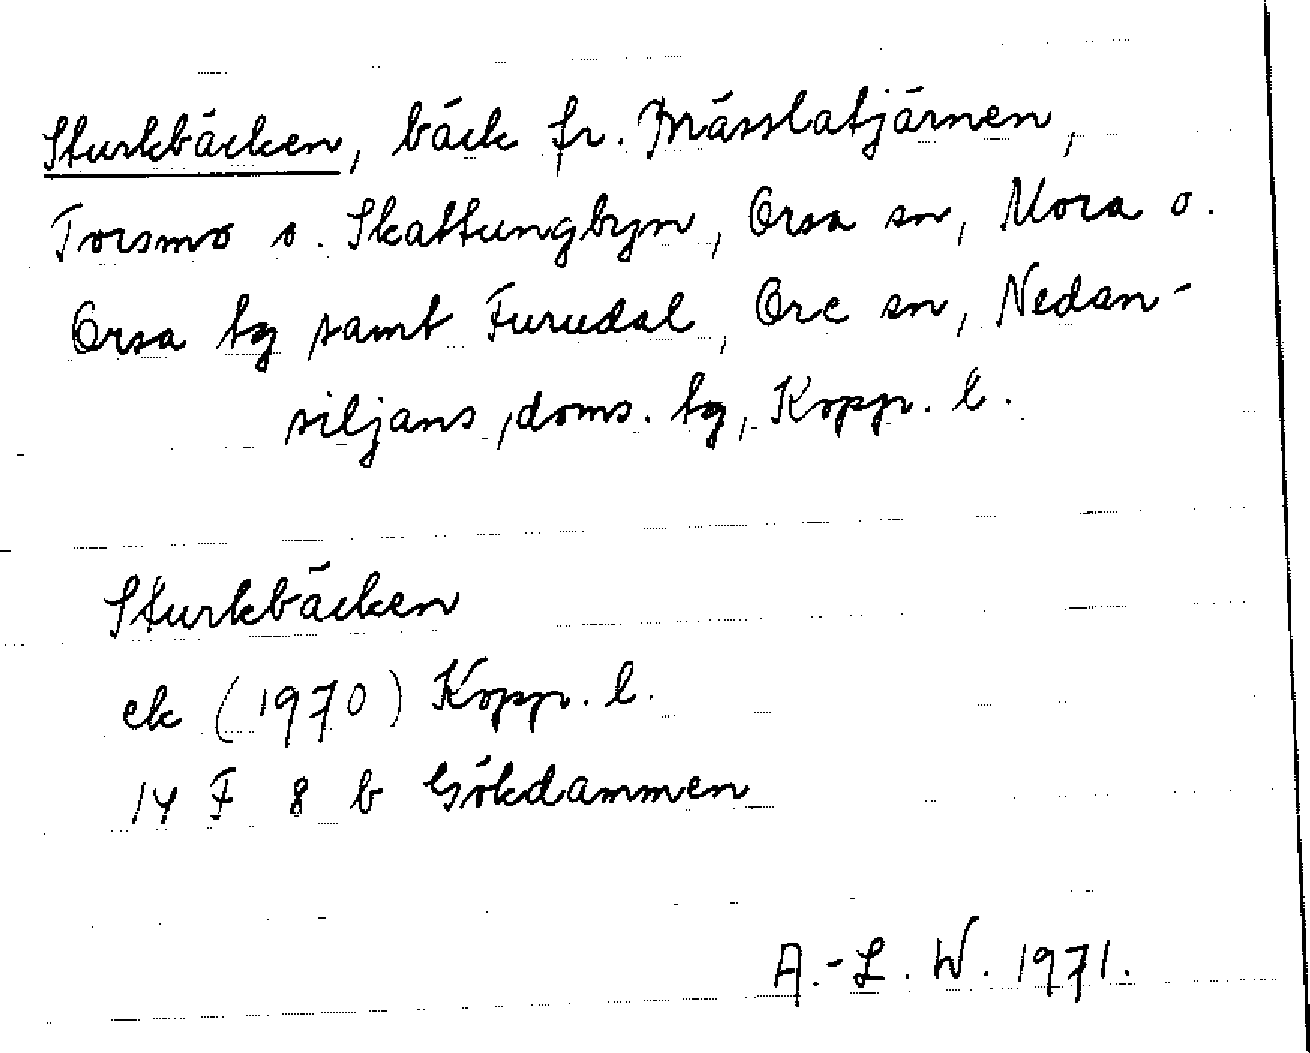 Sturkbäcken, bäck fr. Mässlatjärnen,
Torsmo o. Skattungbyn, Orsa sn, Mora o.
Orsa tg samt Furudal, Ore sn, Nedan-
siljans doms. tg, Kopp. l.
Sturkbäcken
ek (1970) Kopp. l.
14 F 8 b Gökdammen
A.-L. W. 1971.